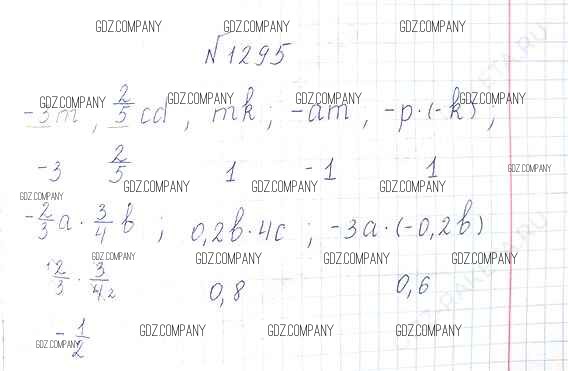 GDZ.COMPANY GDZ.COMPANY GDZ.COMPANY
№1295
GDZ.COMPANY GDZ.COMPANY GDZ.COMPANY GDZ.COMPANY
-3m, 2/5 cd, mk; -am, -p·(-k);
-3 2/5 1 -1 1 GDZ.COMPANY
GDZ.COMPANY GDZ.COMPANY GDZ.COMPANY GDZ.COMPANY
-2/3 a · 3/4 b; 0,2b·4c; -3a·(-0,2b)
GDZ.COMPANY GDZ.COMPANY GDZ.COMPANY
2/3 · 3/4 2 0,8 0,6
-1/2 GDZ.COMPANY GDZ.COMPANY GDZ.COMPANY
GDZ.COMPANY